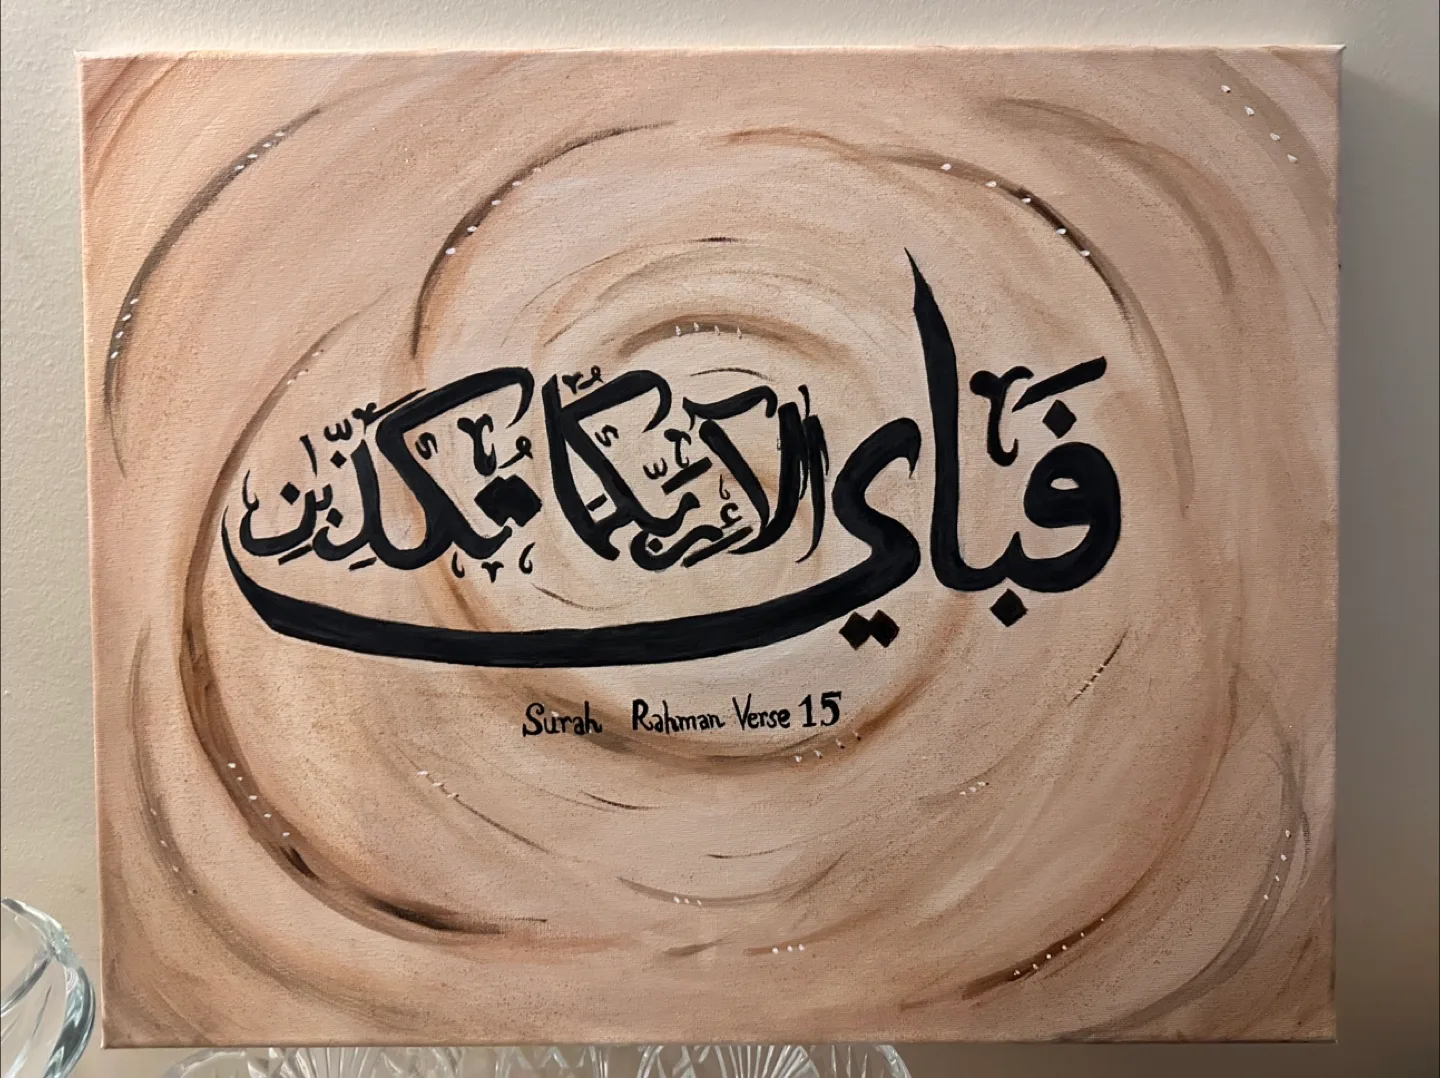 فَبِأَيِّ آلَاءِ رَبِّكُمَا تُكَذِّبَانِ
Surah Rahman Verse 15